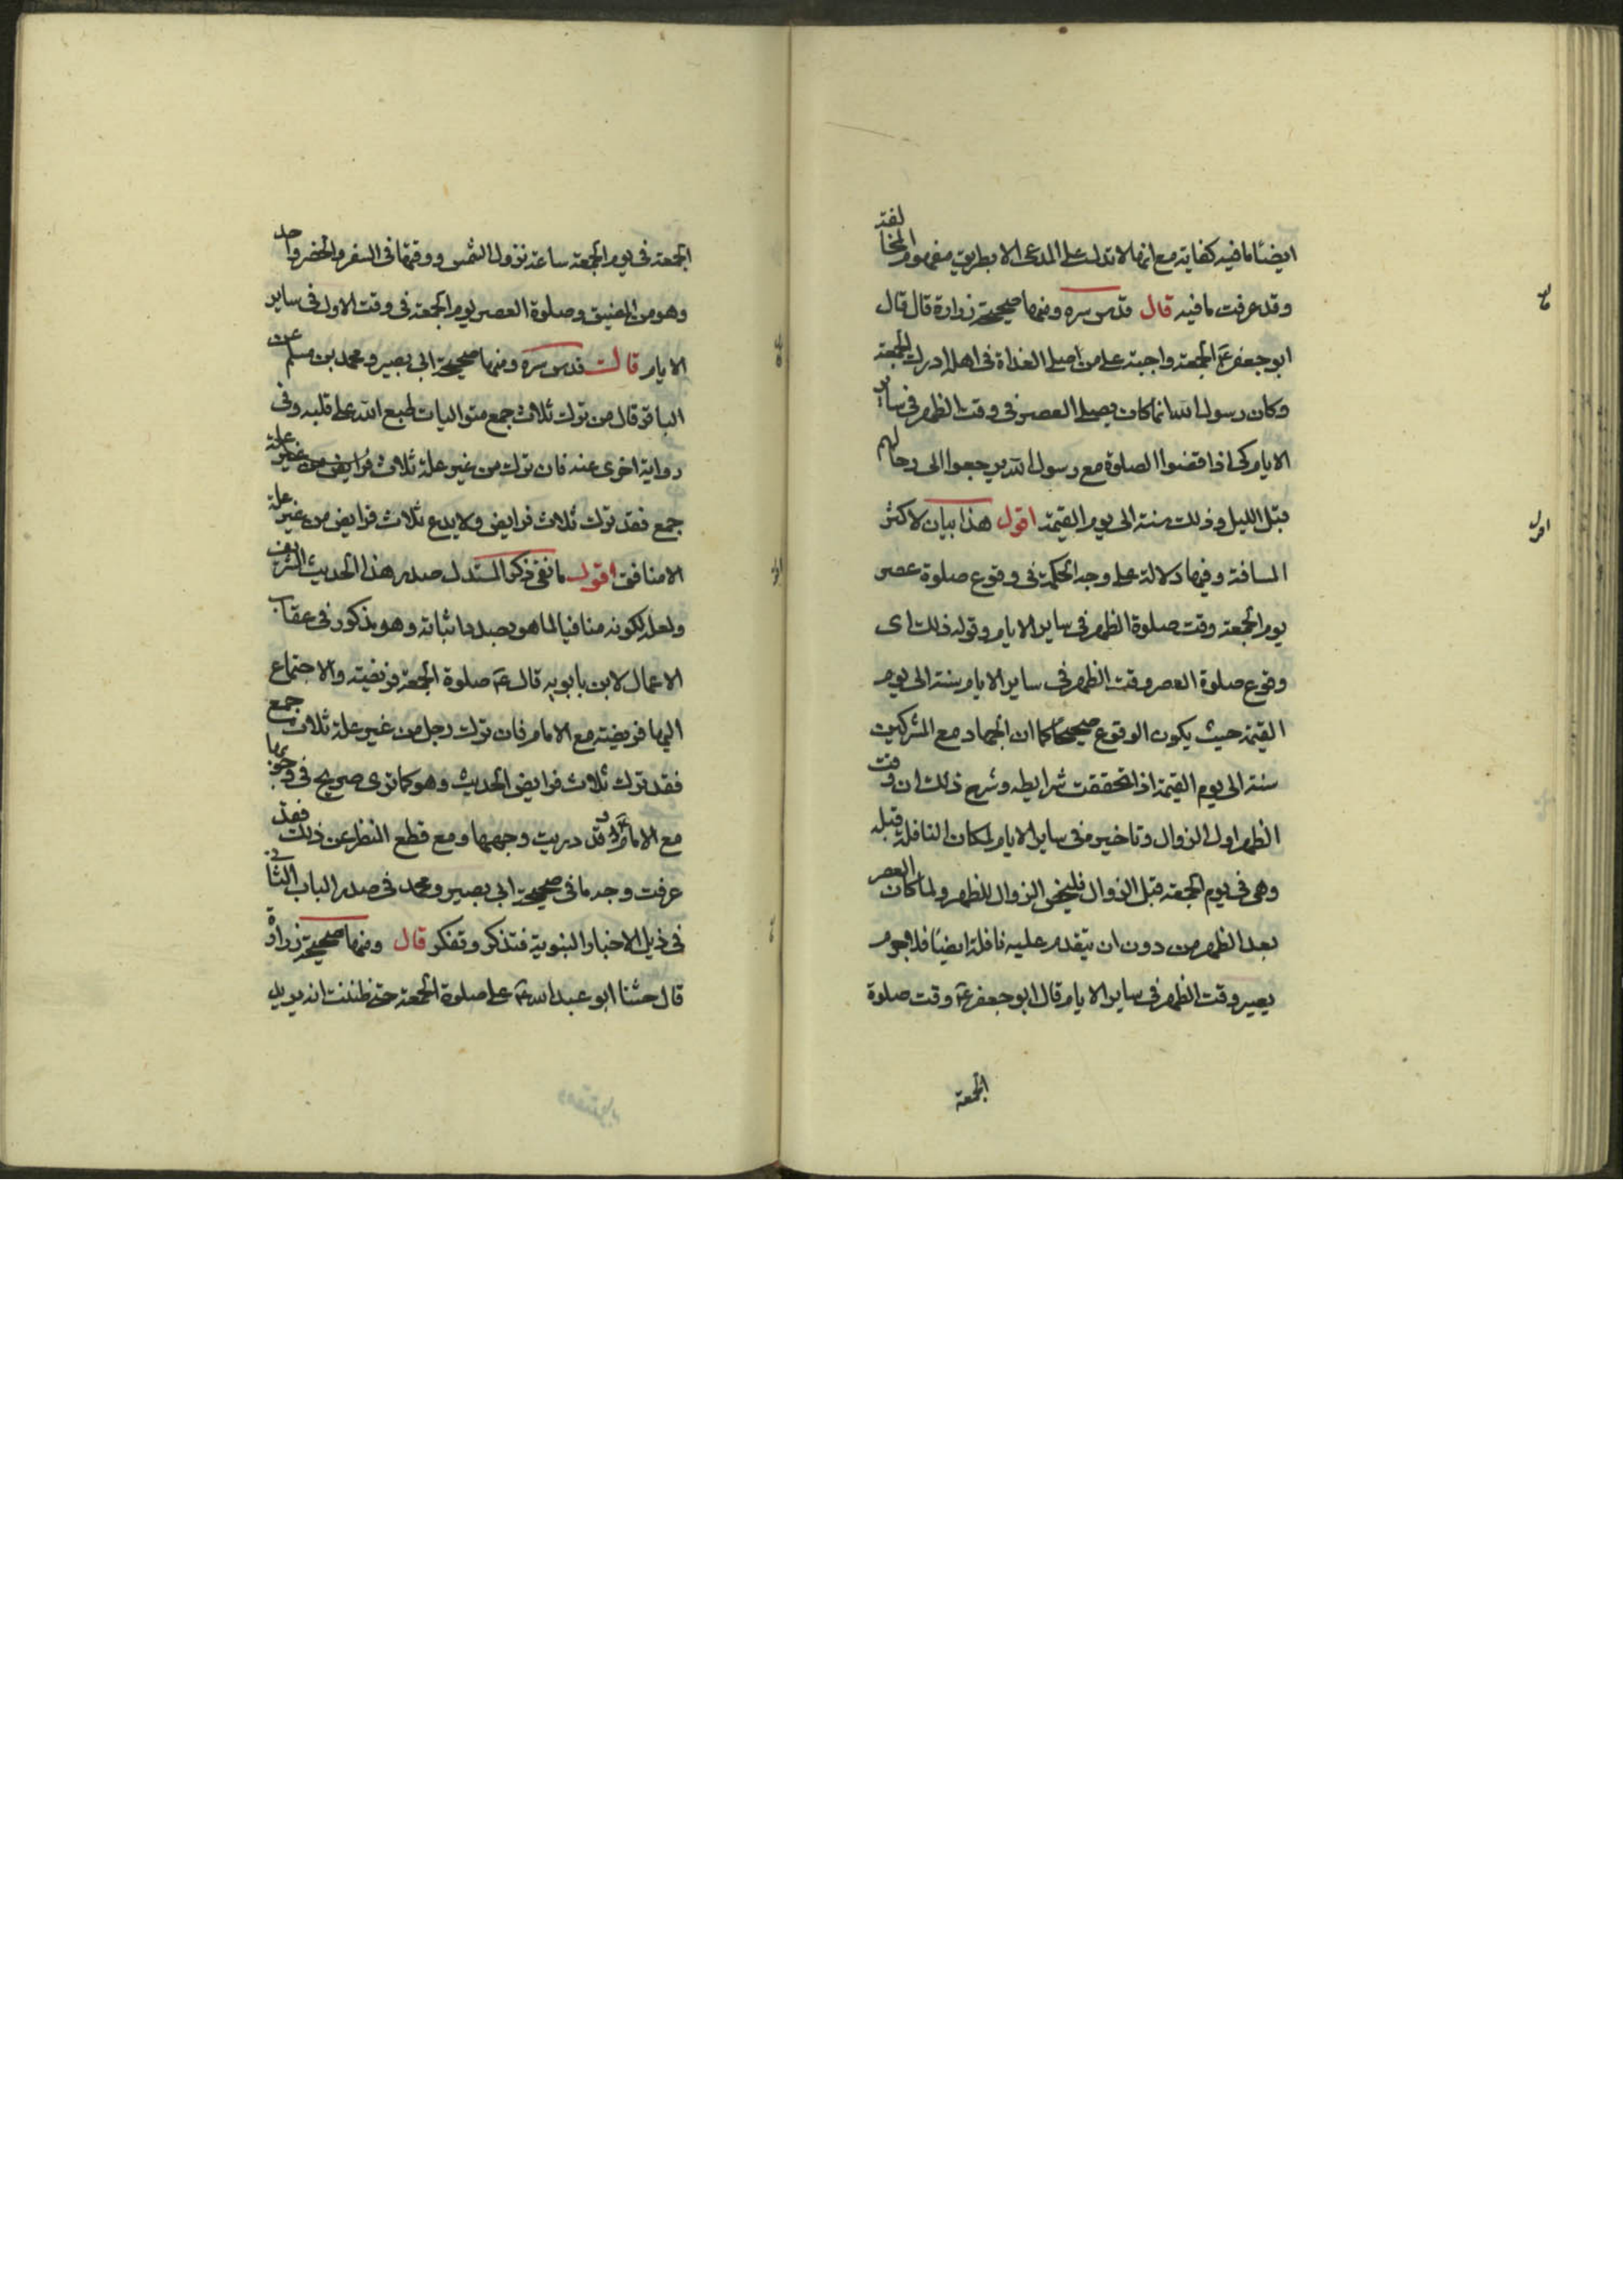 ايضا مافيه كفاية مع انها لا تدل على المدعى الا بطريق مفهوم المخالفة
وقد عرفت مافيه قال قدس سره ومنها صحيحة زرارة قال قال
ابو جعفر ع الجمعة واجبة على من ان صلى الغداة فى اهله ادرك الجمعة
وكان رسول الله انما كان يصلى العصر فى وقت الظهر فى ساير
الايام كى اذا قضوا الصلوة مع رسول الله يرجعوا الى رحالهم
قبل الليل وذلك سنة الى يوم القيمة اقول هذا بيان لاكثر
المسافة وفيها دلالة على وجه الحكمة فى وقوع صلوة عصر
يوم الجمعة وقت صلوة الظهر فى ساير الايام وقوله ذلك اى
وقوع صلوة العصر وقت الظهر فى ساير الايام سنة الى يوم
القيمة حيث يكون الوقوع صحيحا كما ان الجهاد مع المشركين
سنة الى يوم القيمة اذا تحققت شرايطه وشرح ذلك ان وقت
الظهر اول الزوال وتاخيره فى ساير الايام لمكان النافلة قبله
وهى فى يوم الجمعة قبل الزوال فليخص الزوال للظهر ولما كان العصر
بعد الظهر من دون ان يتقدم عليه نافلة ايضا فلا جرم
يصير وقت الظهر فى ساير الايام قال ابو جعفر ع وقت صلوة
الجمعة
قال
اقول
الجمعة فى يوم الجمعة ساعة تزول الشمس ووقتها فى السفر والحضر واحد
وهو من المضيق وصلوة العصر يوم الجمعة فى وقت الاولى فى ساير
الايام قال قدس سره ومنها صحيحة ابى بصير ومحمد بن مسلم عن
الباقر قال من ترك ثلاث جمع متواليات طبع الله على قلبه وفى
رواية اخرى عنه فان ترك من غير علة ثلاث فرايض من غير علة
جمع فقد ترك ثلاث فرايض ولا يدع ثلاث فرايض من غير علة
الا منافق اقول ما نقى ذكر المستدل صدر هذا الحديث الشريف
ولعله لكونه منافيا لما هو بصدد اثباته وهو مذكور فى عقاب
الاعمال لابن بابويه قال ع صلوة الجمعة فريضة والاجتماع
اليها فريضة مع الامام فان ترك رجل من غير علة ثلاث جمع
فقد ترك ثلاث فرايض الحديث وهو كما ترى صريح فى وجوبها
مع الامام وقد دريت وجهها ومع قطع النظر عن ذلك فقد
عرفت وجه ما فى صحيحة ابى بصير ومحمد فى صدر الباب الثانى
فى ذيل الاخبار النبوية فتذكر وتفكر قال ومنها صحيحة زرارة
قال حثنا ابو عبد الله ع على صلوة الجمعة حتى ظننت انه يريد